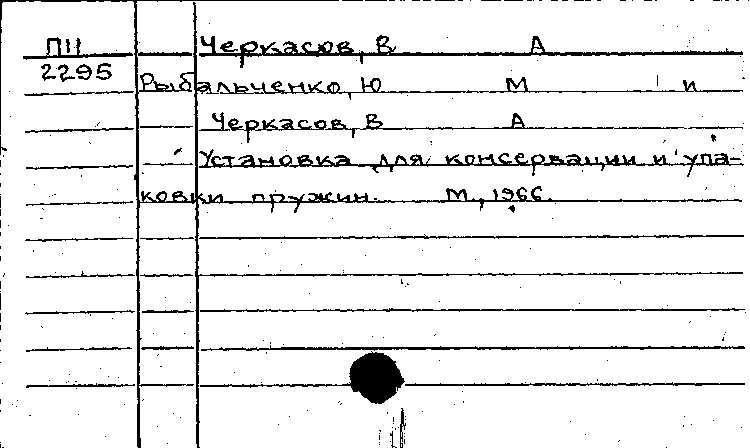 П11 Черкасов, В А
2295
Рыбальченко, Ю М и
Черкасов, В А
Установка для консервации и упа-
ковки пружин. М., 1966.